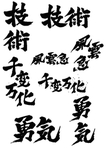 技術
技術
風雲急
風雲急
千変万化
千変万化
勇気
勇気